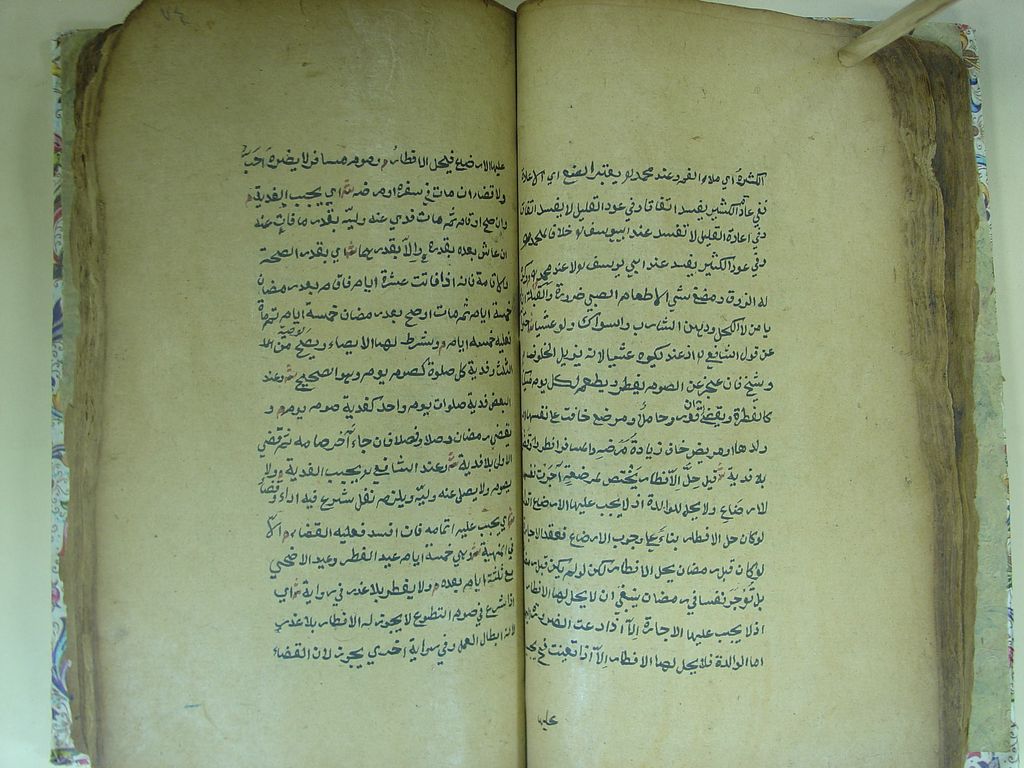 الكثرة اي ملاء الفم وعند محمد ره يعتبر الصنع اي الاعادة
ففي عادة الكثير يفسد اتفاقا وفي عود القليل لا يفسد اتفاقا
وفي اعادة القليل لا تفسد عند ابي يوسف ره خلافا لمحمد ره
وفي عود الكثير يفسد عند ابي يوسف لا عند محمد ره وكره
له الذوق ومضغ شئ الا طعام الصبي ضرورة والقبلة ان
يامن لا الكحل ودهن الشارب والسواك ولو عشيا
عن قول الشافعي ره اذ عنده يكره عشيا لانه يزيل الخلوف
وشيخ فان عجز عن الصوم يفطر ويطعم لكل يوم مسكينا
كالفطرة ويقضي ان قدر وحامل ومرضع خافت على نفسها او
ولدها ومريض خاف زيادة مرضه والمسافر افطروا وقضوا
بلا فدية قيل حل الافطار يختص لمرضعة آجرت نفسها
للارضاع ولا يحل للوالدة اذ لا يجب عليها الارضاع
لو كان حل الافطار بناء على وجوب الارضاع فعقد الاجارة
لو كان قبل رمضان يحل الافطار لكن لو لم يكن قبل رمضان
بل توجر نفسا في رمضان ينبغي ان لا يحل لها الافطار
اذ لا يجب عليها الاجارة الا اذا دعت الضرورة
اما الوالدة فلا يحل لها الافطار الا اذا تعينت فح يجب
عليها
٧٤
عليها الارضاع فيحل الافطار وصوم مسافر لا يضره احب
ولا قضاء ان مات في سفره او مرضه اي يجب الفدية
وان صح او قام ثم مات فدى عنه وليه بقدر ما فات عنه
ان عاش بعده بقدره والا بقدرهما اي بقدر الصحة
والاقامة فانه اذا فاتت عشرة ايام فاقام بعد رمضان
خمسة ايام ثم مات او صح بعد رمضان خمسة ايام ثم مات
فعليه خمسة ايام وشرط لها الايصاء ويصح من
الثلث وفدية كل صلوة كصوم يوم وهو الصحيح وعند
البعض فدية صلوات يوم واحد كفدية صوم يوم و
يقضي رمضان وصلا وفصلا فان جاء آخر صامه ثم قضى
الاول بلا فدية وعند الشافعي ره يجب الفدية ولا
يصوم ولا يصلي عنه وليه ويلزم نفل شرع فيه اداء وقضاء
اي يجب عليه اتمامه فان افسد فعليه القضاء الا
في المنهية وهي خمسة ايام عيد الفطر وعيد الاضحى
مع ثلثة ايام بعده ولا يفطر بلا عذر في رواية اي
اذا شرع في صوم التطوع لا يجوز له الافطار بلا عذر
لانه ابطال العمل وفي رواية اخرى يجوز لان القضاء